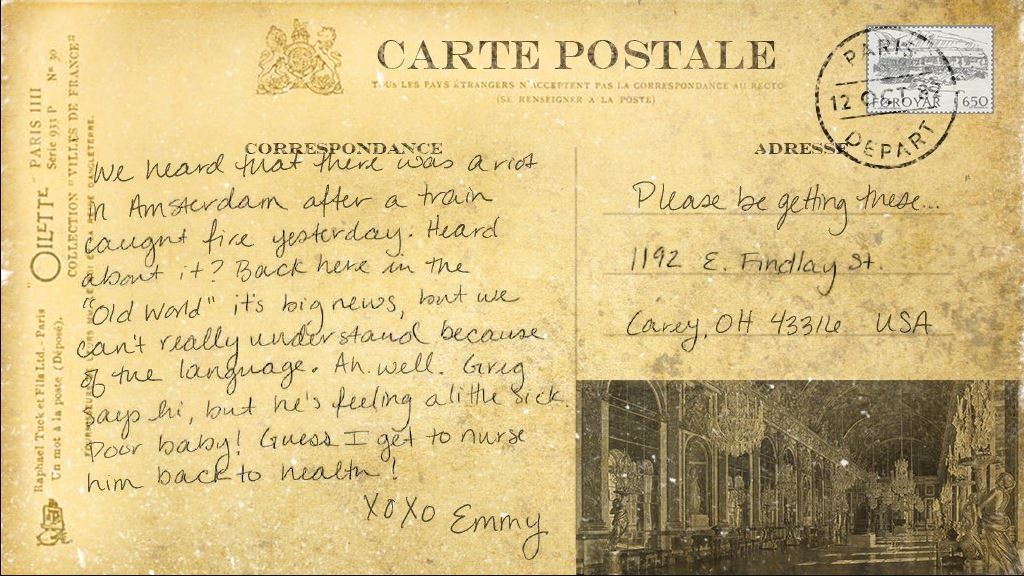 CARTE POSTALE
TOUS LES PAYS ÉTRANGERS N'ACCEPTENT PAS LA CORRESPONDANCE AU RECTO
(SE RENSEIGNER A LA POSTE)
PARIS
12 OCT
DEPART
FØROYAR 650
CORRESPONDANCE
We heard that there was a riot
in Amsterdam after a train
caught fire yesterday. Heard
about it? Back here in the
"Old World" it's big news, but we
can't really understand because
of the language. Ah. well. Greg
says hi, but he's feeling a little sick.
Poor baby! Guess I get to nurse
him back to health!
XOXO Emmy
ADRESSE
Please be getting these...
1192 E. Findlay St.
Carey, OH 43316 USA
"OILETTE" PARIS IIII
Série 933 P No 30
COLLECTION "VILLES DE FRANCE"
Raphael Tuck et Fils Ltd. Paris
Un mot à la poste (Déposé).